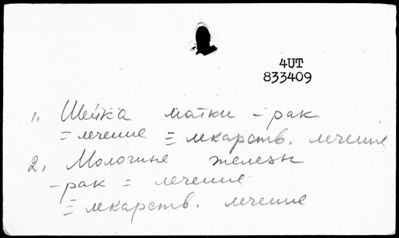 4UT
833409
1. Шейка матки - рак
= лечение ≡ лекарств. лечение
2. Молочные железы
- рак = лечение
≡ лекарств. лечение